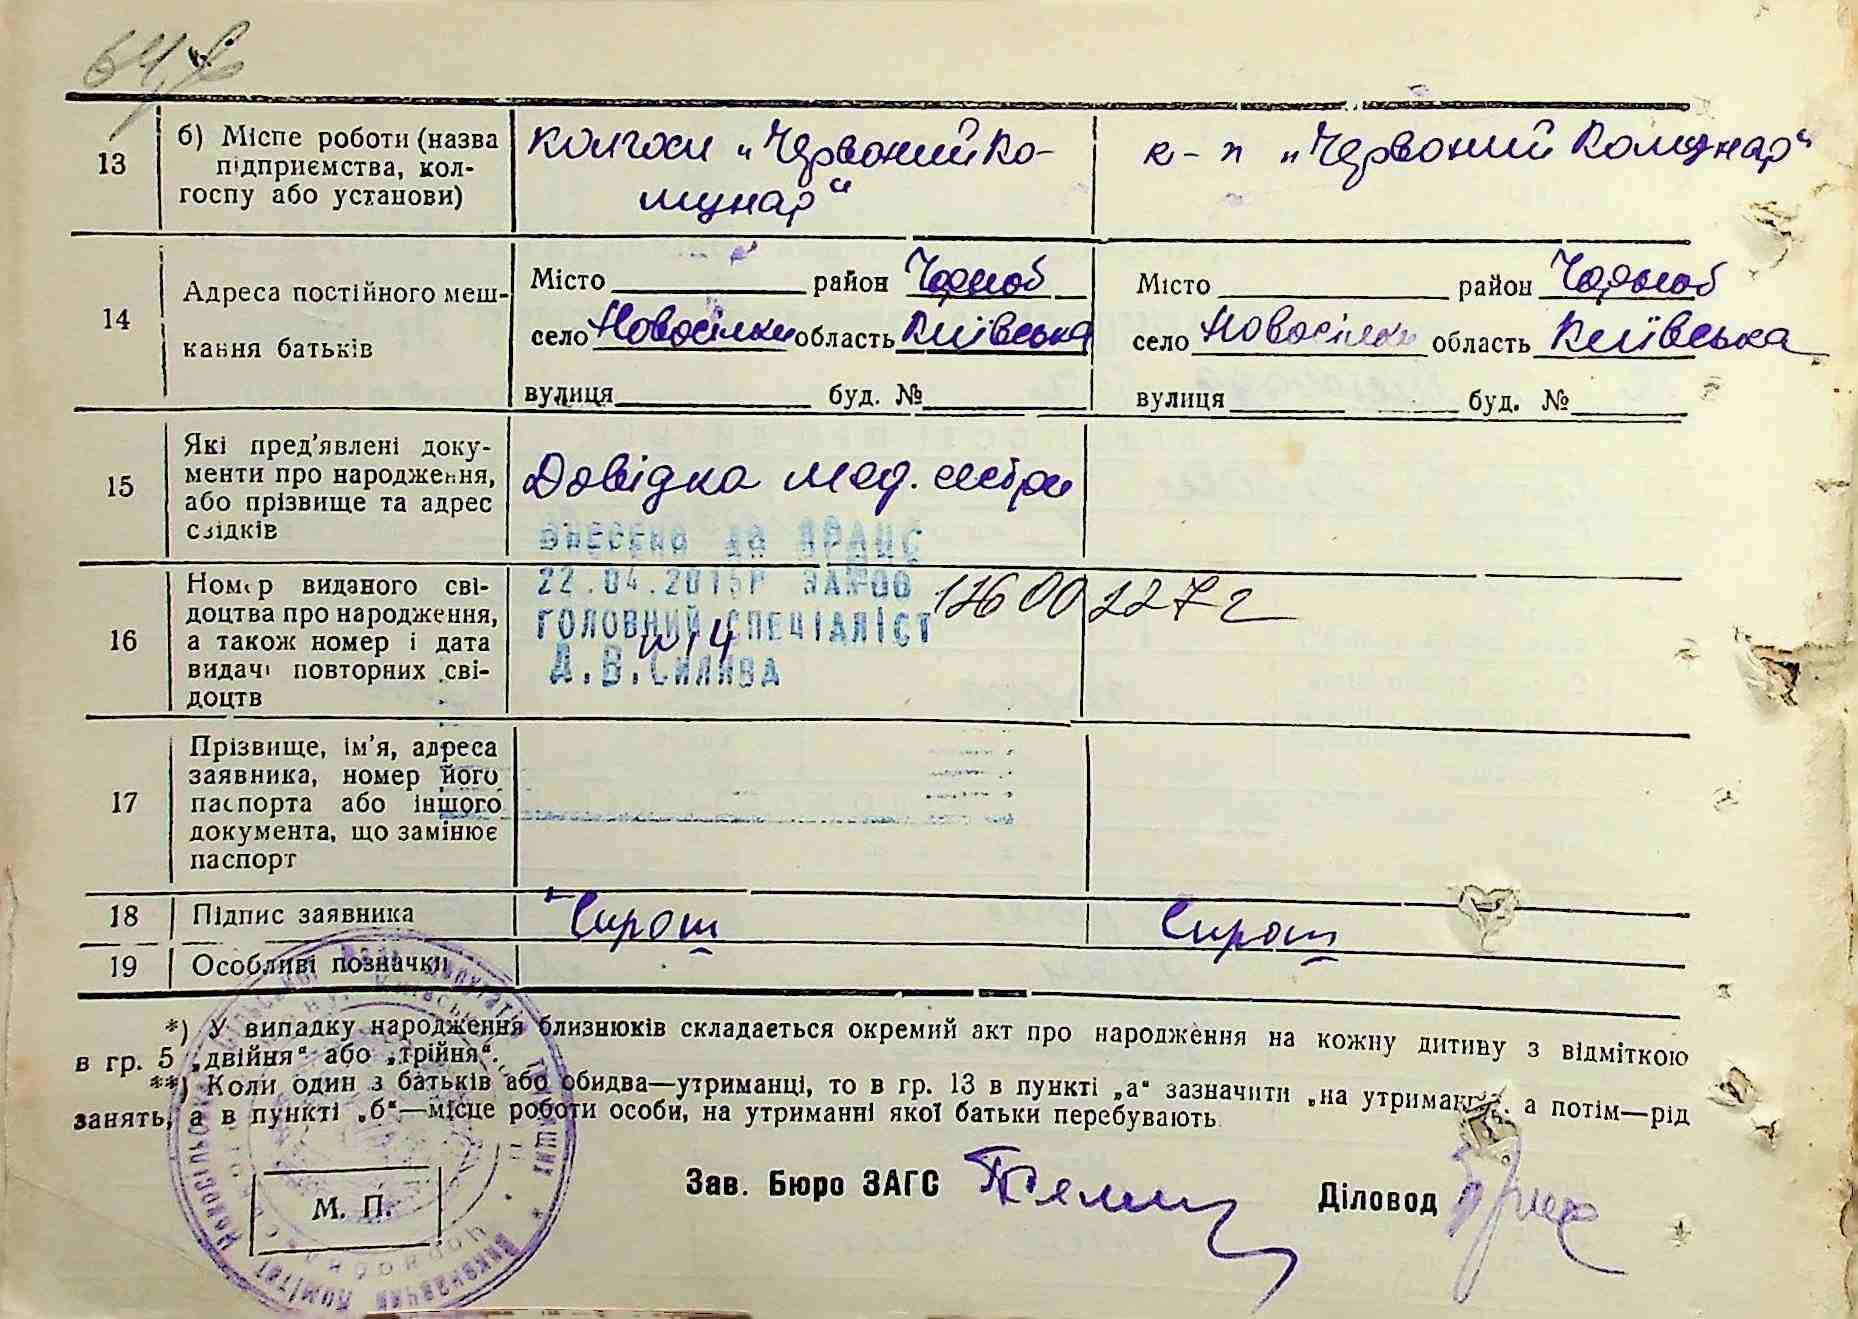 13
б) Місце роботи (назва
підприємства, кол-
госпу або установи)
колгосп „Червоний Ко-
мунар“
к-п „Червоний Комунар“
14
Адреса постійного меш-
кання батьків
Місто район Чорноб
село Новосілки область Київська
вулиця буд. №
Місто район Чорноб
село Новосілки область Київська
вулиця буд. №
15
Які пред'явлені доку-
менти про народження,
або прізвище та адрес
свідків
Довідка мед. сестри
16
Номер виданого сві-
доцтва про народження,
а також номер і дата
видачі повторних сві-
доцтв
ВНЕСЕНО ДО ДРАЦС
22.04.2015Р ЗА №00 1260022272
ГОЛОВНИЙ СПЕЦІАЛІСТ
№ 14
17
Прізвище, ім'я, адреса
заявника, номер його
паспорта або іншого
документа, що замінює
паспорт
18
Підпис заявника
Сирот
Сирот
19
Особливі позначки
*) У випадку народження близнюків складається окремий акт про народження на кожну дитину з відміткою
в гр. 5 „двійня“ або „трійня“.
**) Коли один з батьків або обидва—утриманці, то в гр. 13 в пункті „а“ зазначити „на утриманні“, а потім—рід
занять, а в пункті „б“—місце роботи особи, на утриманні якої батьки перебувають
М. П.
Зав. Бюро ЗАГС
Діловод